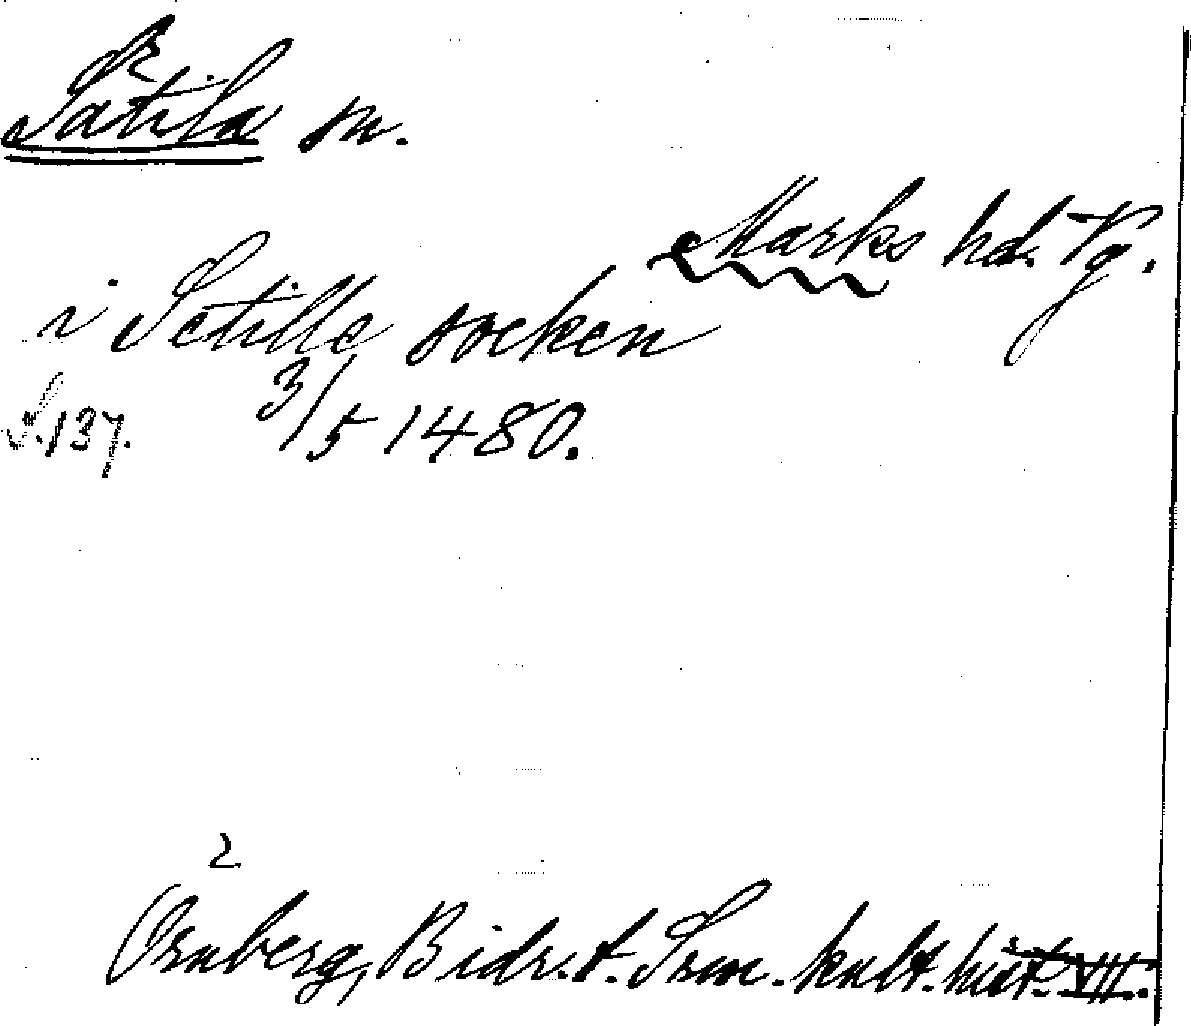 Sätila sn.
Marks hd. Vg.
i Setille socken
S. 137. 3/5 1480.
2
Örnberg, Bidr. t. Sven. kult. hist. VII.